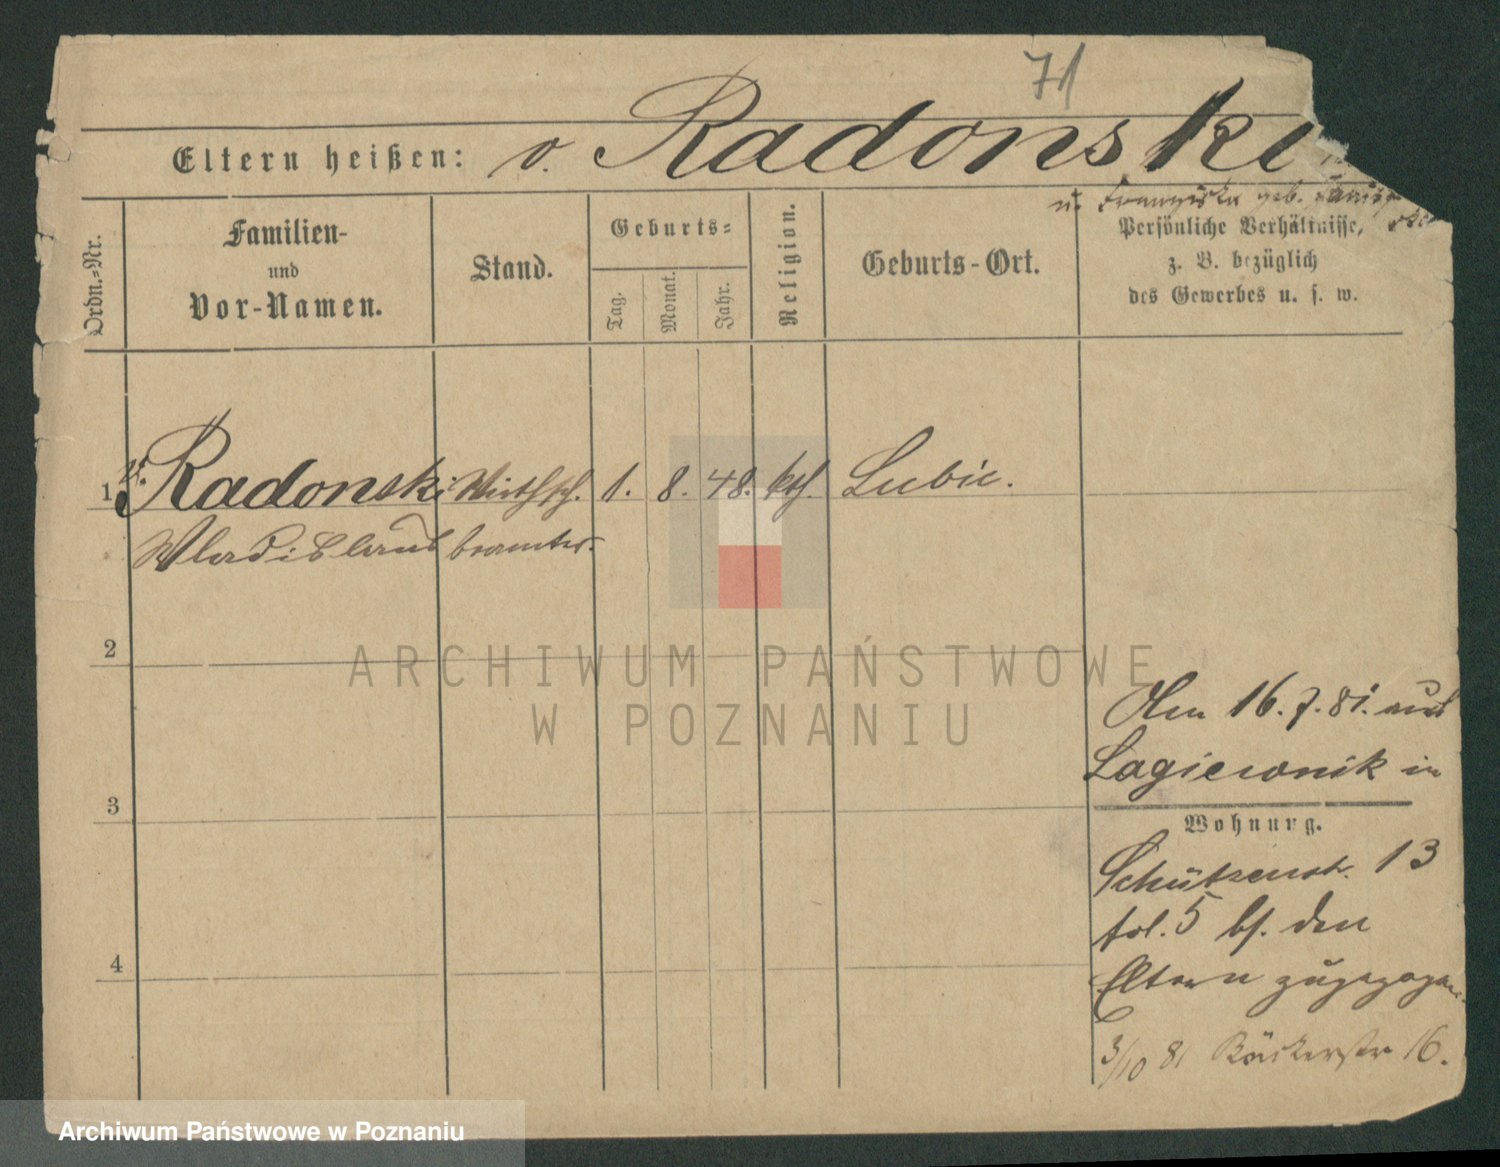 71
Eltern heißen: v. Radonski
u. Franziska geb.
Ordn.-Nr.
Familien-
und
Vor-Namen.
Stand.
Geburts-
Tag.
Monat.
Jahr.
Religion.
Geburts-Ort.
Persönliche Verhältnisse,
z. B. bezüglich
des Gewerbes u. s. w.
1 v. Radonski Wirthsch. 1. 8. 48. kth. Lubin.
Wladislaus beamter.
2
3
4
ARCHIWUM PAŃSTWOWE
W POZNANIU
Am 16.7.81. aus
Lagiewnik in
Wohnung.
Schützenstr. 13
fol. 5 bf. den
Eltern zugezogen
3/10 81 Bäckerstr 16.
Archiwum Państwowe w Poznaniu